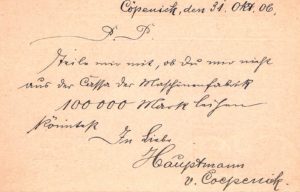 Cöpenick, den 31. Okt. 06.
P. P.
Teile mir mit, ob Du mir nicht
aus der Cassa der Maschinenfabrik
100 000 Mark leihen
könntest
In Liebe
Hauptmann
v. Coepenick